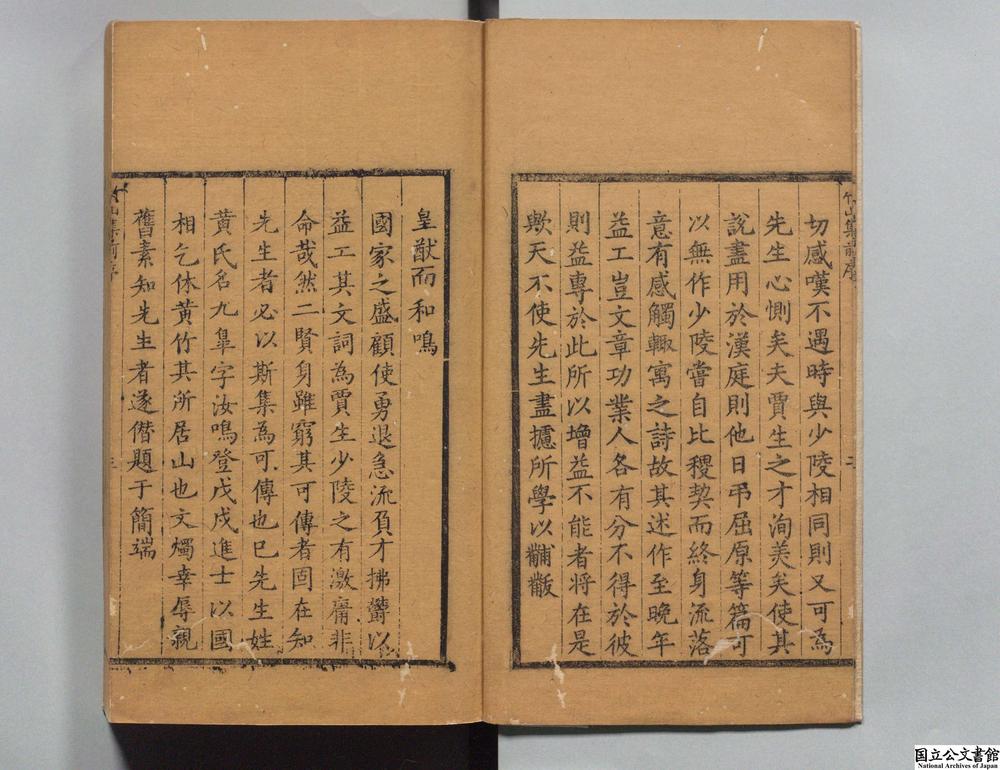 切感嘆不遇時與少陵相同則又可為
先生心惻矣夫賈生之才洵美矣使其
說盡用於漢庭則他日弔屈原等篇可
以無作少陵嘗自比稷契而終身流落
意有感觸輙寓之詩故其述作至晚年
益工豈文章功業人各有分不得於彼
則益專於此所以增益不能者將在是
歟天不使先生盡攄所學以黼黻
皇猷而和鳴
國家之盛顧使勇退急流負才拂鬱以
益工其文詞為賈生少陵之有激庸非
命哉然二賢身雖窮其可傳者固在知
先生者必以斯集為可傳也已先生姓
黄氏名九臯字汝鳴登戊戌進士以國
相乞休黄竹其所居山也文燭幸辱親
舊素知先生者遂僭題于簡端
竹山集前序
国立公文書館
National Archives of Japan